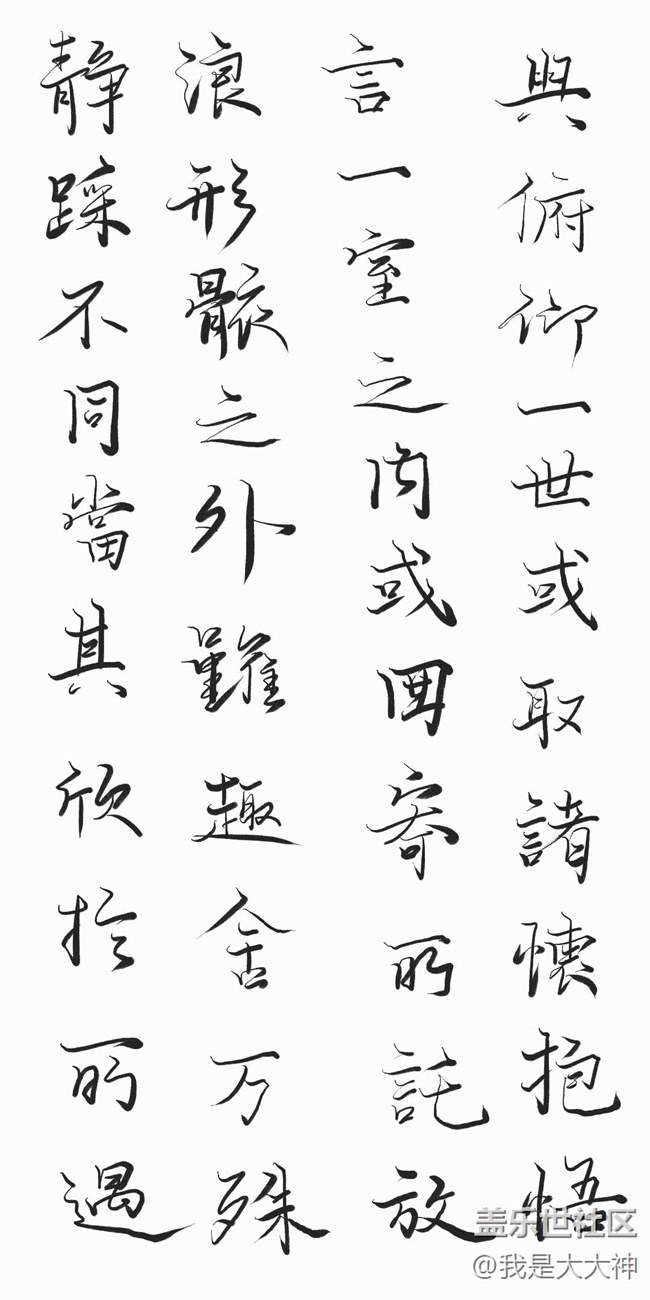 與俯仰一世或取諸懷抱悟
言一室之内或因寄所託放
浪形骸之外雖趣舍万殊
静躁不同當其欣於所遇
盖乐世社区
@我是大大神